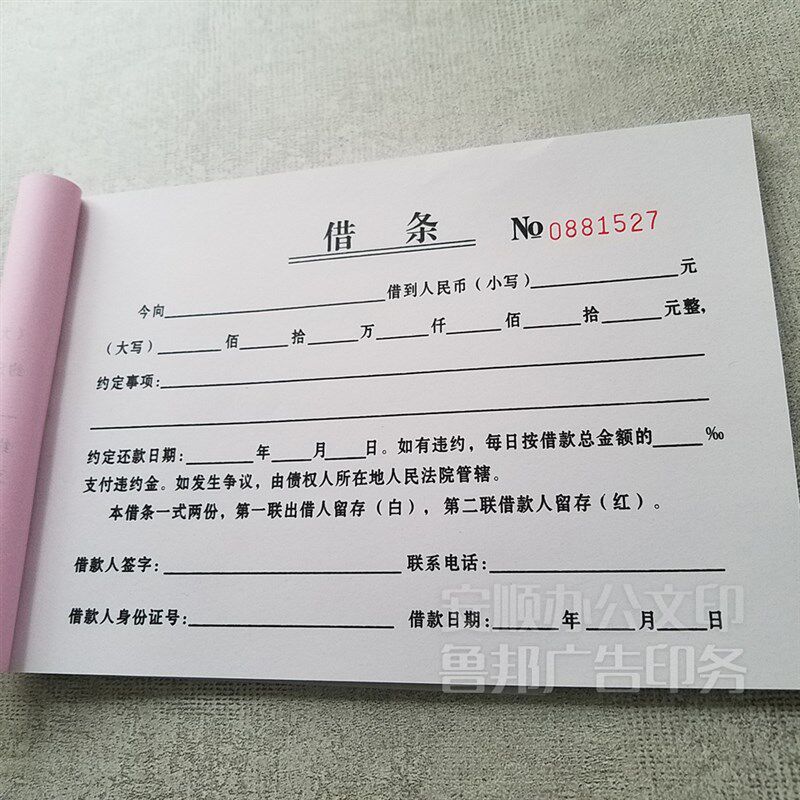 借 条 № 0881527
今向________借到人民币(小写)________元
(大写)____佰____拾____万____仟____佰____拾____元整,
约定事项:________
约定还款日期:____年____月____日。如有违约,每日按借款总金额的____‰
支付违约金。如发生争议,由债权人所在地人民法院管辖。
本借条一式两份,第一联出借人留存(白),第二联借款人留存(红)。
借款人签字:________ 联系电话:________
借款人身份证号:________ 借款日期:____年____月____日
安顺办公文印
鲁邦广告印务